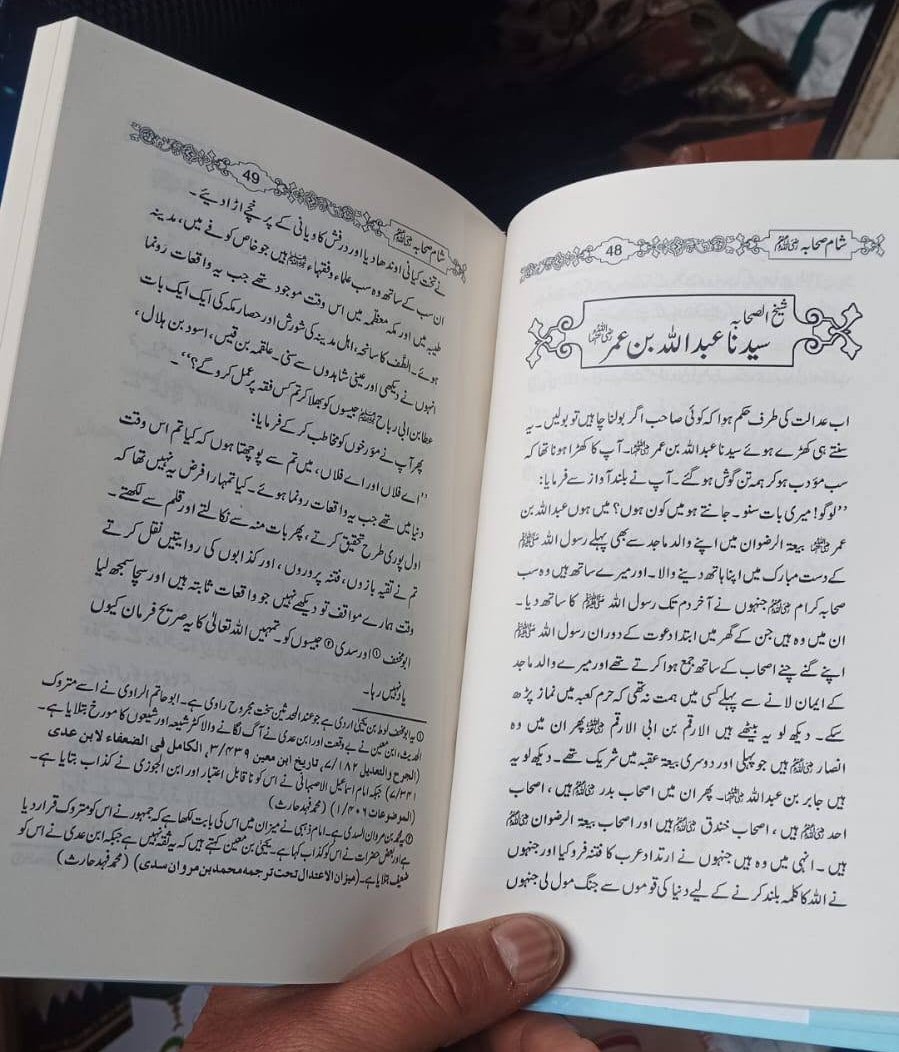 شام صحابہ رضی اللہ عنہم
48
شیخ الصحابہ
سیدنا عبداللہ بن عمر رضی اللہ عنہما
اب عدالت کی طرف حکم ہوا کہ کوئی صاحب اگر بولنا چاہیں تو بولیں۔ یہ
سنتے ہی کھڑے ہوئے سیدنا عبداللہ بن عمر رضی اللہ عنہما۔ آپ کا کھڑا ہونا تھا کہ
سب مؤدب ہو کر ہمہ تن گوش ہو گئے۔ آپ نے بلند آواز سے فرمایا:
”لوگو! میری بات سنو۔ جانتے ہو میں کون ہوں؟ میں ہوں عبداللہ بن
عمر رضی اللہ عنہما بیعۃ الرضوان میں اپنے والد ماجد سے بھی پہلے رسول اللہ ﷺ
کے دست مبارک میں اپنا ہاتھ دینے والا۔ اور میرے ساتھ ہیں وہ سب
صحابہ کرام رضی اللہ عنہم جنہوں نے آخر دم تک رسول اللہ ﷺ کا ساتھ دیا۔
ان میں وہ ہیں جن کے گھر میں ابتدا دعوت کے دوران رسول اللہ ﷺ
اپنے گنے چنے اصحاب کے ساتھ جمع ہوا کرتے تھے اور میرے والد ماجد
کے ایمان لانے سے پہلے کسی میں ہمت نہ تھی کہ حرم کعبہ میں نماز پڑھ
سکے۔ دیکھ لو یہ بیٹھے ہیں الارقم بن ابی الارقم رضی اللہ عنہ پھر ان میں وہ
انصار رضی اللہ عنہم ہیں جو پہلی اور دوسری بیعۃ عقبہ میں شریک تھے۔ دیکھ لو یہ
ہیں جابر بن عبداللہ رضی اللہ عنہما۔ پھر ان میں اصحاب بدر رضی اللہ عنہم ہیں، اصحاب
احد رضی اللہ عنہم ہیں، اصحاب خندق رضی اللہ عنہم ہیں اور اصحاب بیعۃ الرضوان رضی اللہ عنہم
ہیں۔ انہی میں وہ ہیں جنہوں نے ارتداد عرب کا فتنہ فرو کیا اور جنہوں
نے اللہ کا کلمہ بلند کرنے کے لیے دنیا کی قوموں سے جنگ مول لی جنہوں
شام صحابہ رضی اللہ عنہم
49
نے تخت کیانی اوندھا دیا اور درفش کاویانی کے پرنچے اڑا دیئے۔
ان سب کے ساتھ وہ سب علماء وفقہاء رحمہم اللہ ہیں جو خاص کوفے میں، مدینہ
طیبہ میں اور مکہ معظمہ میں اس وقت موجود تھے جب یہ واقعات رونما
ہوئے۔ الطف کا سانحہ، اہل مدینہ کی شورش اور حصار مکہ کی ایک ایک بات
انہوں نے دیکھی اور عینی شاہدوں سے سنی۔ علقمہ بن قیس، اسود بن ہلال،
عطا بن ابی رباح رحمہم اللہ جیسوں کو بھلا کر تم کس فقہ پر عمل کرو گے؟“۔
پھر آپ نے مؤرخوں کو مخاطب کر کے فرمایا:
”اے فلاں اور اے فلاں، میں تم سے پوچھتا ہوں کہ کیا تم اس وقت
دنیا میں تھے جب یہ واقعات رونما ہوئے۔ کیا تمہارا فرض یہ نہیں تھا کہ
اول پوری طرح تحقیق کرتے، پھر بات منہ سے نکالتے اور قلم سے لکھتے۔
تم نے تقیہ بازوں، فتنہ پروروں، اور کذابوں کی روایتیں نقل کرتے
وقت ہمارے مواقف تو دیکھے نہیں جو واقعات ثابتہ ہیں اور سچا سمجھ لیا
ابومخنف ① اور سدی ② جیسوں کو۔ تمہیں اللہ تعالیٰ کا یہ صریح فرمان کیوں
یاد نہیں رہا۔
① یہ ابومخنف لوط بن یحییٰ ازدی ہے جو عند المحدثین سخت مجروح راوی ہے۔ ابو حاتم الرازی نے اسے متروک
الحدیث، ابن معین نے بے وقعت اور ابن عدی نے آگ لگانے والا کٹر شیعہ اور شیعوں کا مورخ بتلایا ہے۔
(الجرح والتعدیل ۷/۱۸۲، تاریخ ابن معین ۳/۴۳۹، الکامل فی الضعفاء لابن عدی
۷/۲۴۱) جبکہ امام اسماعیل الاصبہانی نے اس کو ناقابل اعتبار اور ابن الجوزی نے کذاب بتایا ہے۔
(الموضوعات ۱/۴۰۶) (محمد فہد حارث)
② یہ محمد بن مروان السدی ہے۔ امام ذہبی نے میزان میں اس کی بابت لکھا ہے کہ جمہور نے اس کو متروک قرار دیا
ہے اور بعض حضرات نے اس کو کذاب کہا ہے۔ یحییٰ بن معین کہتے ہیں کہ یہ ثقہ نہیں ہے جبکہ ابن عدی نے اس کو
ضعیف بتلایا ہے۔ (میزان الاعتدال تحت ترجمہ محمد بن مروان سدی) (محمد فہد حارث)